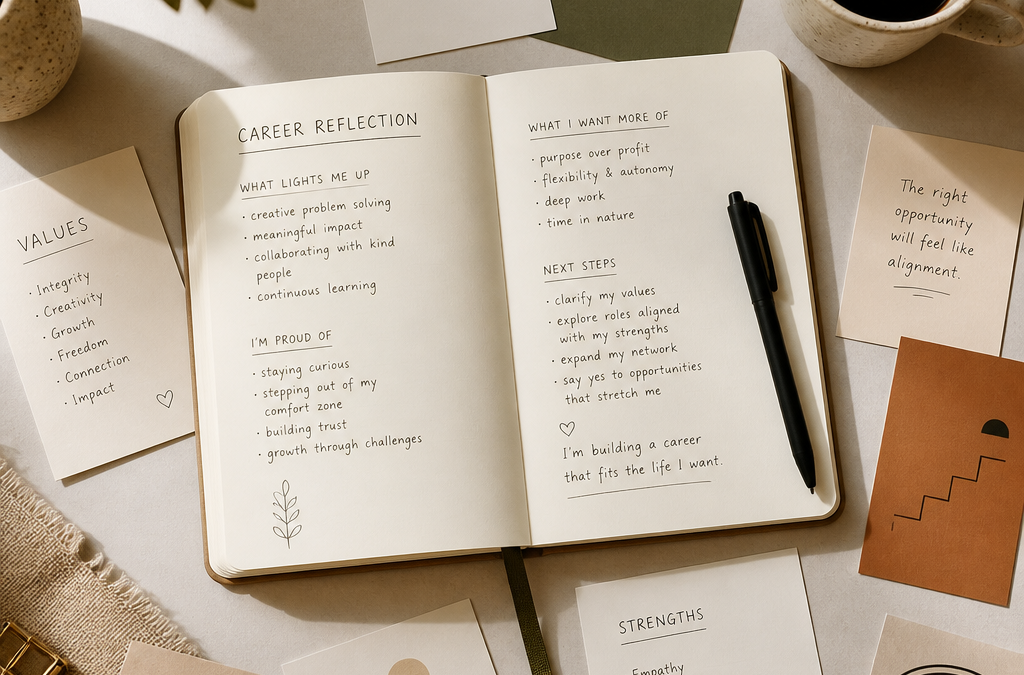 CAREER REFLECTION
WHAT LIGHTS ME UP
• creative problem solving
• meaningful impact
• collaborating with kind
people
• continuous learning
I'M PROUD OF
• staying curious
• stepping out of my
comfort zone
• building trust
• growth through challenges
WHAT I WANT MORE OF
• purpose over profit
• flexibility & autonomy
• deep work
• time in nature
NEXT STEPS
• clarify my values
• explore roles aligned
with my strengths
• expand my network
• say yes to opportunities
that stretch me
I'm building a career
that fits the life I want.
VALUES
• Integrity
• Creativity
• Growth
• Freedom
• Connection
• Impact
The right
opportunity
will feel like
alignment.
STRENGTHS
Empathy